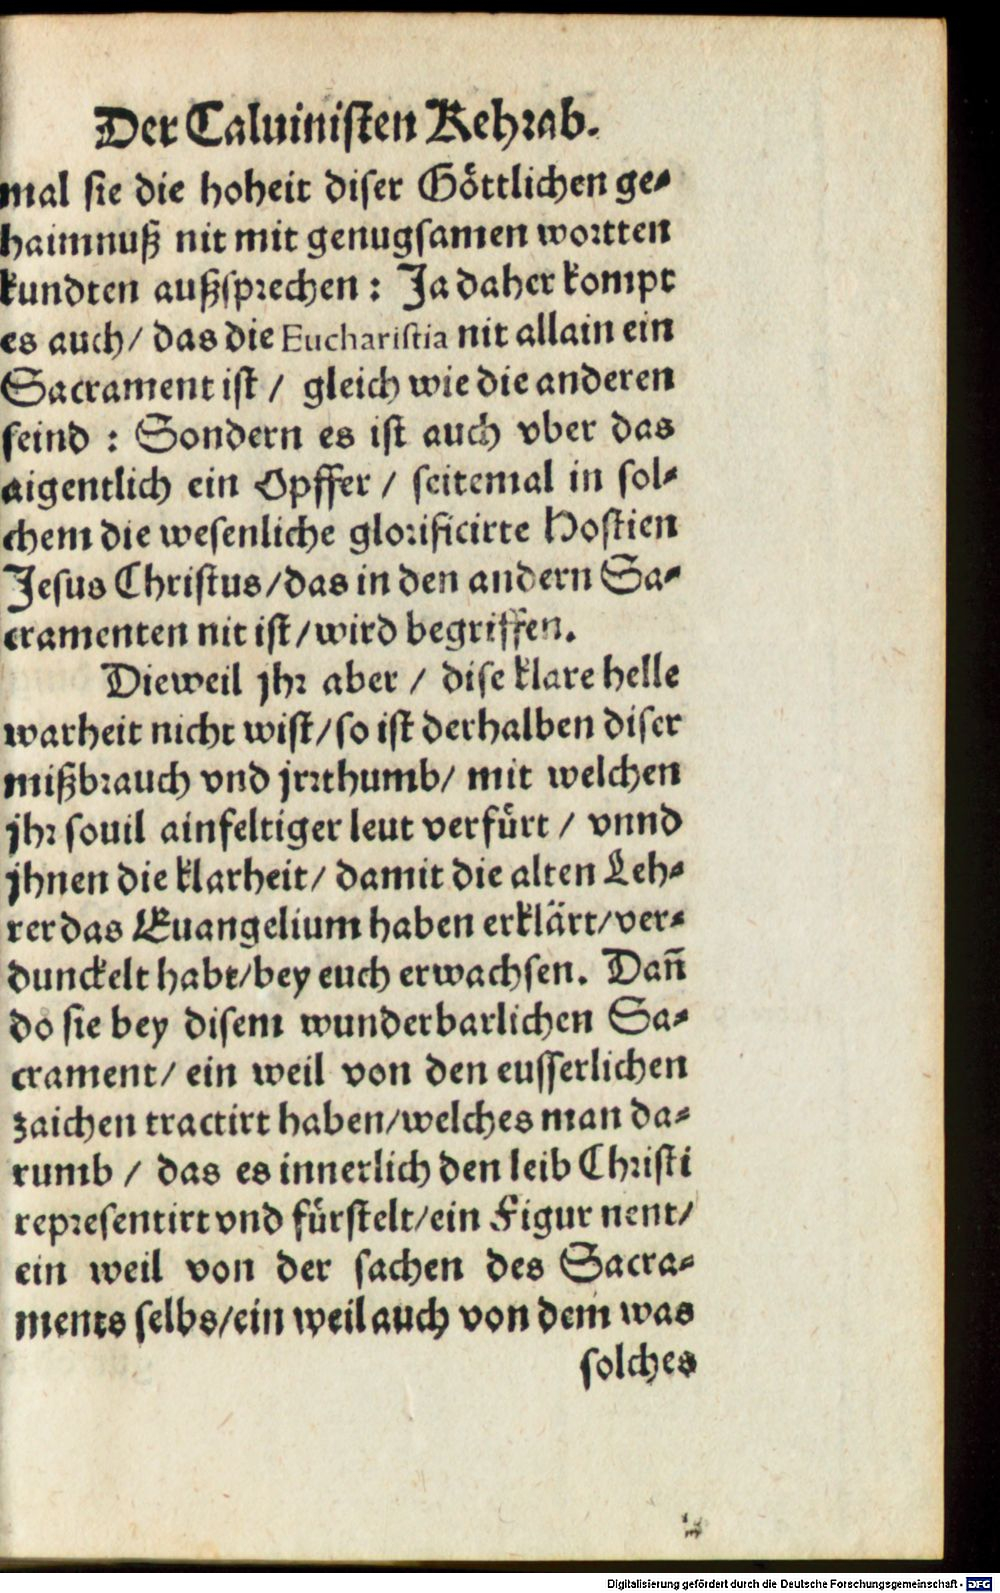 Der Caluinisten Kehrab.
mal sie die hoheit diser Göttlichen ge-
haimnuß nit mit genugsamen wortten
kundten außsprechen : Ja daher kompt
es auch/ das die Eucharistia nit allain ein
Sacrament ist / gleich wie die anderen
seind : Sondern es ist auch vber das
aigentlich ein Opffer / seitemal in sol-
chem die wesenliche glorificirte Hostien
Jesus Christus/das in den andern Sa-
cramenten nit ist/wird begriffen.
Dieweil jhr aber / dise klare helle
warheit nicht wist/so ist derhalben diser
mißbrauch vnd jrrthumb/ mit welchen
jhr souil ainfeltiger leut verfürt / vnnd
jhnen die klarheit/ damit die alten Leh-
rer das Euangelium haben erklärt/ver-
dunckelt habt/bey euch erwachsen. Dañ
do sie bey disem wunderbarlichen Sa-
crament/ ein weil von den eusserlichen
zaichen tractirt haben/welches man da-
rumb / das es innerlich den leib Christi
representirt vnd fürstelt/ein Figur nent/
ein weil von der sachen des Sacra-
ments selbs/ein weil auch von dem was
solches
Digitalisierung gefördert durch die Deutsche Forschungsgemeinschaft - DFG